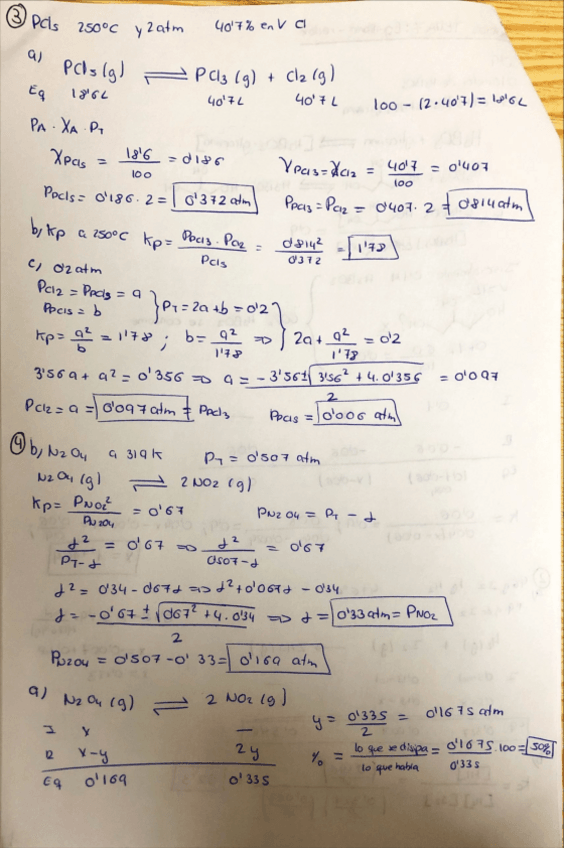 ③ PCl5 250°C y 2 atm 40'7% en V Cl
a)
PCl5 (g) ⇌ PCl3 (g) + Cl2 (g)
Eq 18'6L 40'7L 40'7L 100 - (2·40'7) = 18'6L
PA · XA · PT
XPCl5 = 18'6/100 = 0'186 XPCl3 = XCl2 = 40'7/100 = 0'407
PPCl5 = 0'186 · 2 = 0'372 atm PPCl3 = PCl2 = 0'407 · 2 = 0'814 atm
b) Kp a 250°C Kp = PPCl3 · PCl2 / PPCl5 = 0'814² / 0'372 = 1'78
c) 0'2 atm
PCl2 = PPCl3 = a
PPCl5 = b } PT = 2a + b = 0'2
Kp = a²/b = 1'78 ; b = a²/1'78 ⇒ } 2a + a²/1'78 = 0'2
3'56a + a² = 0'356 ⇒ a = (-3'56 ± √(3'56² + 4·0'356)) / 2 = 0'097
PCl2 = a = 0'097 atm = PPCl3 PPCl5 = 0'006 atm
④ b) N2O4 a 319K PT = 0'507 atm
N2O4 (g) ⇌ 2NO2 (g)
Kp = PNO2² / PN2O4 = 0'67 PN2O4 = PT - d
d² / (PT - d) = 0'67 ⇒ d² / (0'507 - d) = 0'67
d² = 0'34 - 0'67d ⇒ d² + 0'067d - 0'34
d = (-0'67 ± √(0'67² + 4·0'34)) / 2 ⇒ d = 0'33 atm = PNO2
PN2O4 = 0'507 - 0'33 = 0'169 atm
a) N2O4 (g) ⇌ 2 NO2 (g)
I x —
R x-y 2y
Eq 0'169 0'335
y = 0'335/2 = 0'1675 atm
% = lo que se disipa / lo que había = 0'1675/0'335 · 100 = 50%